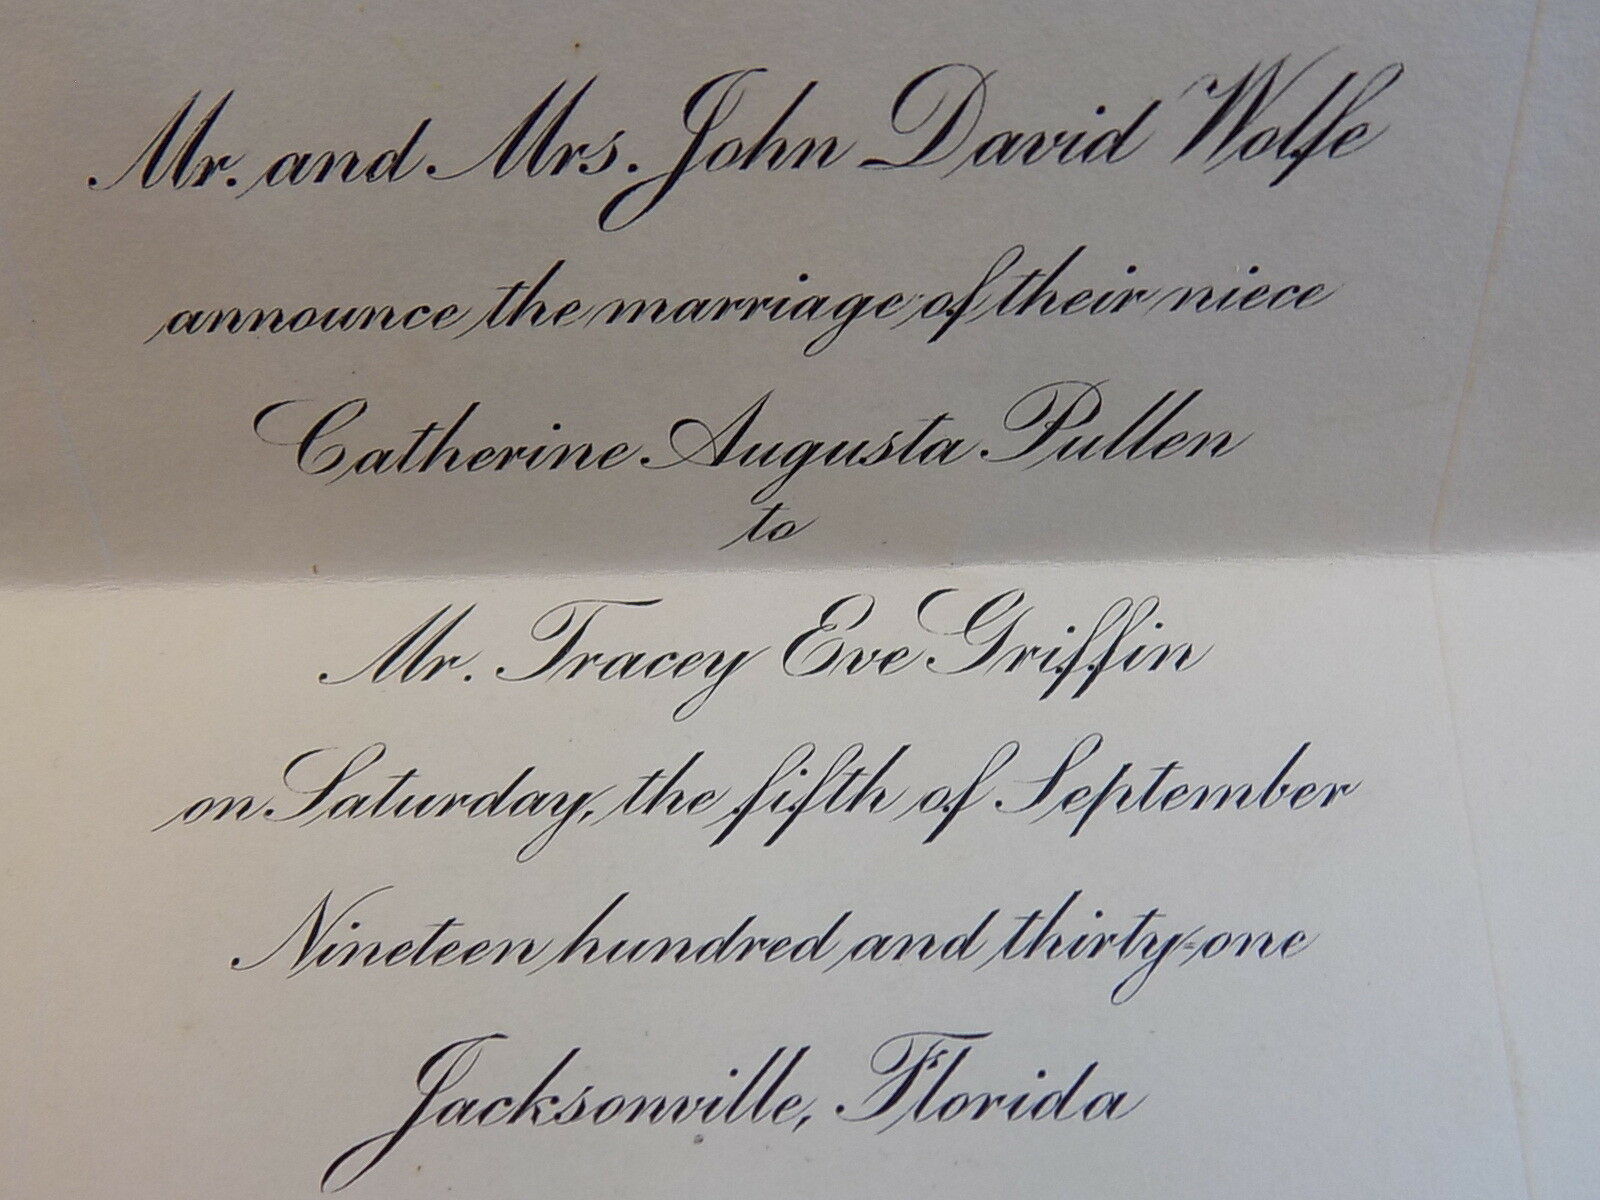 Mr. and Mrs. John David Wolfe
announce the marriage of their niece
Catherine Augusta Pullen
to
Mr. Tracey Eve Griffin
on Saturday, the fifth of September
Nineteen hundred and thirty-one
Jacksonville, Florida